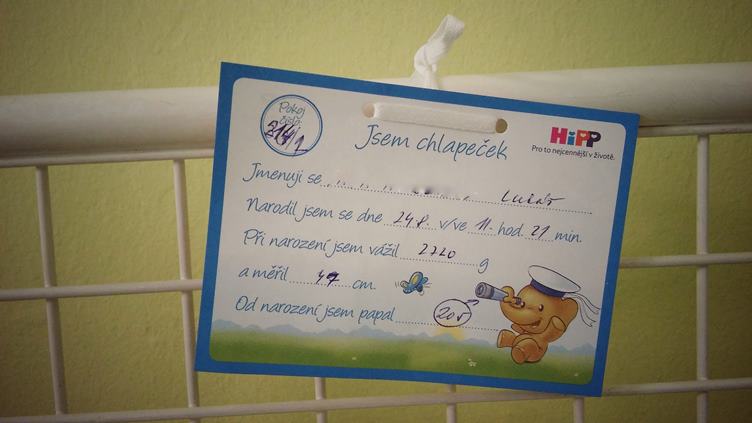 Pokoj
číslo:
Jsem chlapeček
HiPP
Pro to nejcennější v životě.
Jmenuji se Lukáš
Narodil jsem se dne 24.8. v/ve 11. hod. 21 min.
Při narození jsem vážil 2720 g
a měřil 47 cm.
Od narození jsem papal